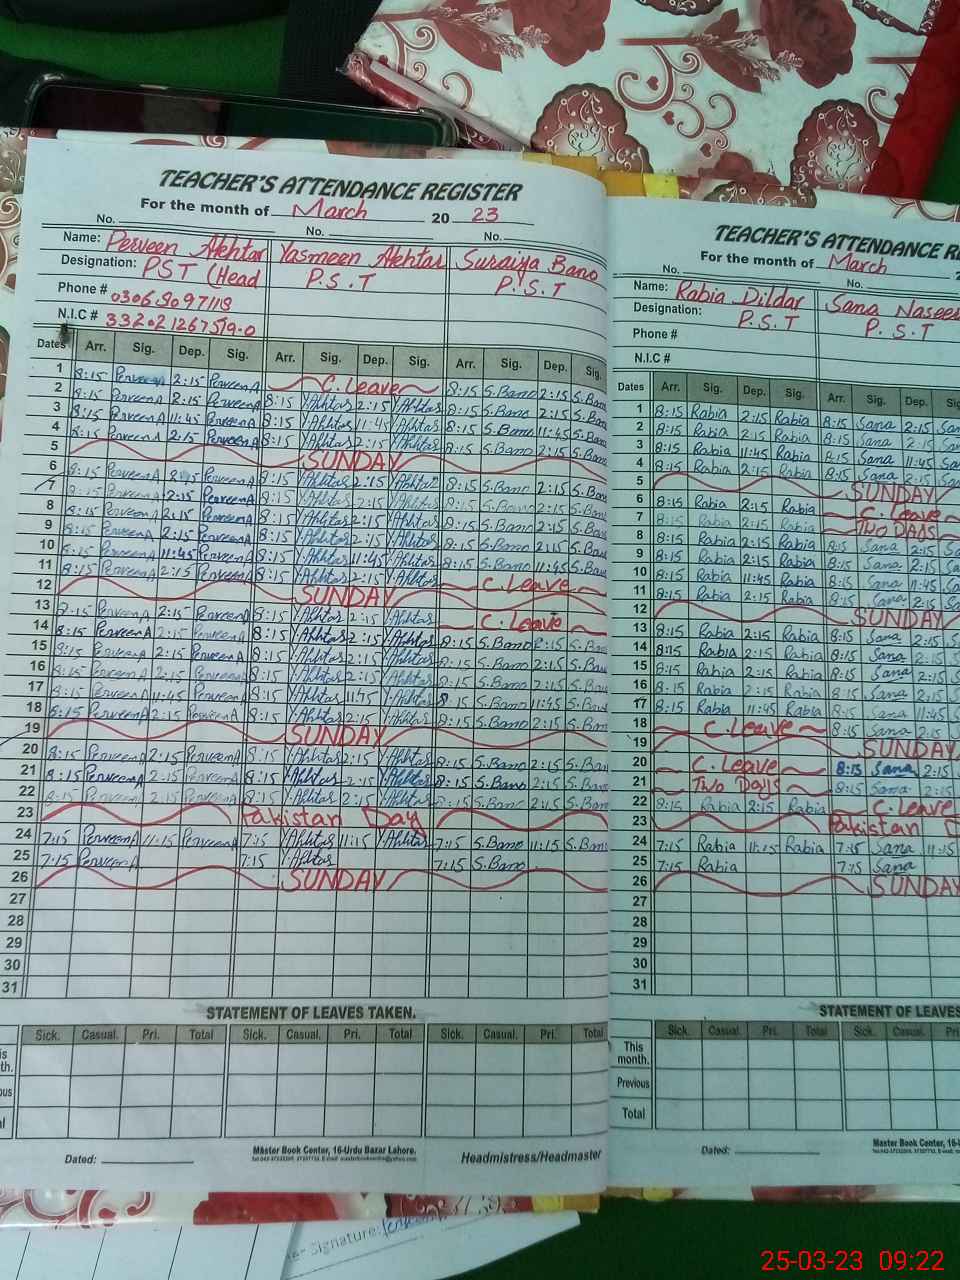 TEACHER'S ATTENDANCE REGISTER
For the month of March 20 23
No. No. No.
Name: Perveen Akhtar Yasmeen Akhtar Suraiya Bano
Designation: PST (Head P.S.T P.S.T
Phone #
N.I.C #
Dates Arr. Sig. Dep. Sig. Arr. Sig. Dep. Sig. Arr. Sig. Dep. Sig.
1 8:15 2:15 PerveenA C.Leave 8:15 S.Bano 2:15 S.B
2 8:15 PerveenA 2:15 PerveenA 8:15 Y.Akhtar 2:15 Y.Akhtar 8:15 S.Bano 2:15 S.B
3 8:15 PerveenA 11:45 PerveenA 8:15 Y.Akhtar 11:45 Y.Akhtar 8:15 S.Bano 11:45 S.B
4 8:15 PerveenA 2:15 PerveenA 8:15 Y.Akhtar 2:15 Y.Akhtar 8:15 S.Bano 2:15 S.B
5 SUNDAY
6 8:15 PerveenA 2:15 PerveenA 8:15 Y.Akhtar 2:15 Y.Akhtar 8:15 S.Bano 2:15 S.Ba
7 8:15 PerveenA 2:15 PerveenA 8:15 Y.Akhtar 2:15 Y.Akhtar 8:15 S.Bano 2:15 S.B
8 8:15 PerveenA 2:15 PerveenA 8:15 Y.Akhtar 2:15 Y.Akhtar 8:15 S.Bano 2:15 S.Ba
9 8:15 PerveenA 2:15 PerveenA 8:15 Y.Akhtar 2:15 Y.Akhtar 8:15 S.Bano 2:15 S.B
10 8:15 PerveenA 11:45 PerveenA 8:15 Y.Akhtar 11:45 Y.Akhtar 8:15 S.Bano 11:45 S.B
11 8:15 PerveenA 2:15 PerveenA 8:15 Y.Akhtar 2:15 Y.Akhtar C.Leave
12 SUNDAY
13 8:15 PerveenA 2:15 PerveenA 8:15 Y.Akhtar 2:15 Y.Akhtar C.Leave
14 8:15 PerveenA 2:15 PerveenA 8:15 Y.Akhtar 2:15 Y.Akhtar 8:15 S.Bano 2:15 S.Ba
15 8:15 PerveenA 2:15 PerveenA 8:15 Y.Akhtar 2:15 Y.Akhtar 8:15 S.Bano 2:15 S.Ba
16 8:15 PerveenA 2:15 PerveenA 8:15 Y.Akhtar 2:15 Y.Akhtar 8:15 S.Bano 2:15 S.Ba
17 8:15 PerveenA 11:45 PerveenA 8:15 Y.Akhtar 11:45 Y.Akhtar 8:15 S.Bano 11:45 S.Ba
18 8:15 PerveenA 2:15 PerveenA 8:15 Y.Akhtar 2:15 Y.Akhtar 8:15 S.Bano 2:15 S.B
19 SUNDAY
20 8:15 PerveenA 2:15 PerveenA 8:15 Y.Akhtar 2:15 Y.Akhtar 8:15 S.Bano 2:15 S.Ban
21 8:15 PerveenA 2:15 PerveenA 8:15 Y.Akhtar 2:15 Y.Akhtar 8:15 S.Bano 2:15 S.Ban
22 8:15 PerveenA 2:15 PerveenA 8:15 Y.Akhtar 2:15 Y.Akhtar 8:15 S.Bano 2:15 S.Ban
23 Pakistan Day
24 7:15 PerveenA 11:15 PerveenA 7:15 Y.Akhtar 11:15 Y.Akhtar 7:15 S.Bano 11:15 S.Ban
25 7:15 PerveenA 7:15 Y.Akhtar 7:15 S.Bano
26 SUNDAY
27
28
29
30
31
STATEMENT OF LEAVES TAKEN.
Sick. Casual. Pri. Total Sick. Casual. Pri. Total Sick. Casual. Pri. Total
is
th.
ous
al
Dated:
Master Book Center, 16-Urdu Bazar Lahore.
Headmistress/Headmaster
TEACHER'S ATTENDANCE RE
For the month of March 2
No. No.
Name: Rabia Dildar Sana Naseer
Designation: P.S.T P.S.T
Phone #
N.I.C #
Dates Arr. Sig. Dep. Sig. Arr. Sig. Dep. S
1 8:15 Rabia 2:15 Rabia 8:15 Sana 2:15 San
2 8:15 Rabia 2:15 Rabia 8:15 Sana 2:15 San
3 8:15 Rabia 11:45 Rabia 8:15 Sana 11:45 Sa
4 8:15 Rabia 2:15 Rabia 8:15 Sana 2:15 Sa
5 SUNDAY
6 8:15 Rabia 2:15 Rabia C.Leave
7 8:15 Rabia 2:15 Rabia Two Days
8 8:15 Rabia 2:15 Rabia 8:15 Sana 2:15 S
9 8:15 Rabia 2:15 Rabia 8:15 Sana 2:15 S
10 8:15 Rabia 11:45 Rabia 8:15 Sana 11:45 S
11 8:15 Rabia 2:15 Rabia 8:15 Sana 2:15 S
12 SUNDAY
13 8:15 Rabia 2:15 Rabia 8:15 Sana 2:15 S
14 8:15 Rabia 2:15 Rabia 8:15 Sana 2:15 S
15 8:15 Rabia 2:15 Rabia 8:15 Sana 2:15 S
16 8:15 Rabia 2:15 Rabia 8:15 Sana 2:15 S
17 8:15 Rabia 11:45 Rabia 8:15 Sana 11:45 S
18 C.Leave 8:15 Sana 2:15 S
19 SUNDAY
20 C.Leave 8:15 Sana 2:15 S
21 Two Days 8:15 Sana 2:15
22 8:15 Rabia 2:15 Rabia C.Leave
23 Pakistan D
24 7:15 Rabia 11:15 Rabia 7:15 Sana 11:15
25 7:15 Rabia 7:15 Sana
26 SUNDAY
27
28
29
30
31
STATEMENT OF LEAVES
Sick. Casual. Pri. Total Sick. Casual. P
This month.
Previous
Total
Dated:
Master Book Center, 16-U
Signature:
25-03-23 09:22